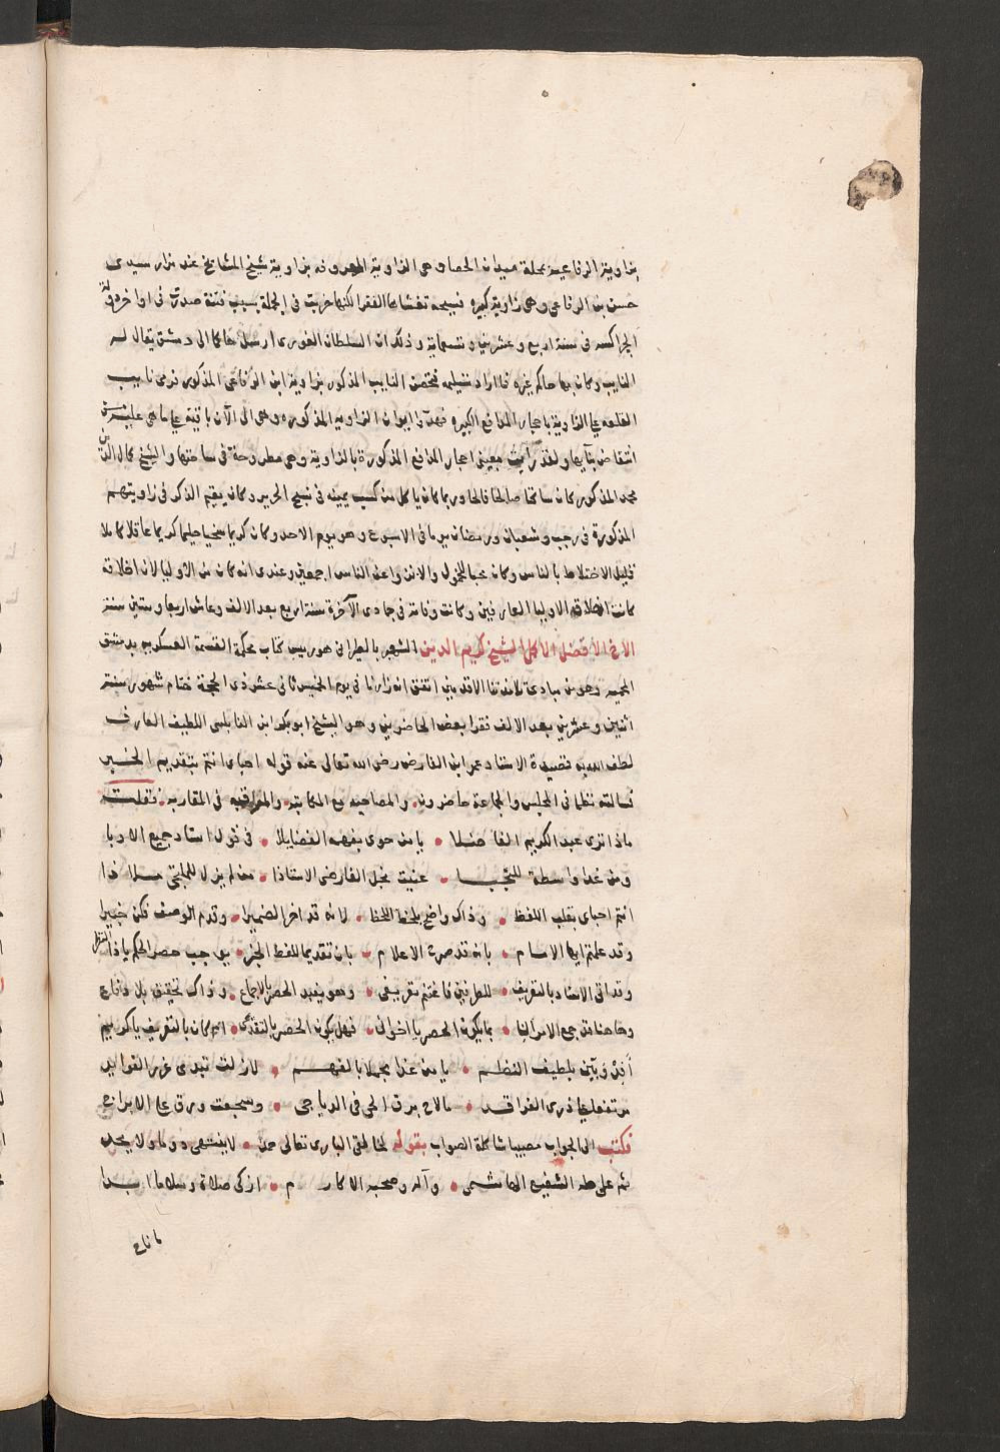 بزاوية الرفاعية بمحلة ميدان الحصا وهى الزاوية المعروفة بزاوية شيخ المشايخ عند مزار سيدى
حسن بن الرفاعى وهى زاوية كبيرة فسيحة تغشاها الفقرا لكنها خربت فى الجملة بسبب فتنة صدرت فى اواخر دولة
الجراكسه فى سنة اربع وعشرين وتسعماية وذلك ان السلطان الغورى ارسل حاكما الى دمشق يقال له
النايب وكان بها حاكم غيره فاراد تسليمه فتحصن النايب المذكور بزاوية ابن الرفاعى المذكور فرمى نايب
القلعه على الزاوية باحجار المدافع الكبيره فهدم ايوان الزاوية المذكوره وهى الى الآن باقية على ما هى عليه من
انتقاض بنايها ولقد رايت بعينى احجار المدافع المذكورة بالزاوية وهى مطروحة فى ساحتها والشيخ كمال الدين
محمد المذكور كان ساكتا صالحا فالحا وربما كان ياكل من كسب يمينه فى نسج الحرير وكان يقيم الذكر فى زاويتهم
المذكورة فى رجب وشعبان ورمضان يوما فى الاسبوع وهو يوم الاحد وكان كريما سخيا حليما كريما عاقلا كاملا
قليل الاختلاط بالناس وكان محبا للخمول والانزواء عن الناس اجمعين وعندى انه كان من الاوليا لان اخلاقه
كانت اخلاق الاوليا العارفين وكانت وفاته فى جمادى الآخرة سنة اربع بعد الالف وعاش اربعا وستين سنة
الاخ الافضل الاكمل الشيخ كريم الدين الشهير بالطارانى هو رييس كتاب محكمة القسمة العسكريه بدمشق
المحميه وهو من مبادى تلامذتنا الاقدمين اتفق انه زارنا فى يوم الخميس ثانى عشر ذى الحجة ختام شهور سنة
اثنين وعشرين بعد الالف فقرا بعض الحاضرين وهو الشيخ ابو بكر ابن النابلسى اللطيف العارف
لطف الله به قصيدة الاستاد عمر ابن الفارض رضى الله تعالى عنه قوله احباى انتم بتقديم الخبر
فسالته نظما فى المجلس والجماعة حاضرون والمصاحبه مع المكاتبه والمراقبه فى المقاربه فقلت
ماذا ترى عبد الكريم الفاضلا • يا من حوى بفهمه الفضايلا • فى قول استاد جميع الادبا
ومن غدا واسطة للنجبا • عنيت نجل الفارضى الاستاذا • من لم يزل للملتجى ملاذا
انتم احباى بقلب اللفظ • وذاك واضح بلحظ اللحظ • لانه قد اخر الضميرا • وقدم الوصف فكن خبيرا
وقد علمتم ايها الامام • بانه قد صرح الاعلام • بان تقديما للفظ الخبر • يوجب حصر الحكم يا ذا النظر
وقد اتى الاستاد بالتعريف • للطرفين فاغتنم تعريفى • وهو يفيد الحصر بالاجماع • وذاك تحقيق بلا دفاع
وهاهنا قد جمع الامرانا • بما يكون الحصر يا اخوانا • فهل يكون الحصر بالتقديم • ام كان بالتعريف يا كريم
افدن وبين بلطيف النظم • يا من غدا مجملا بالفهم • لازلت تبدى غرر الفوايد
مرتفعا على ذرى الفراقد • مالاح برق الحى فى الدياجى • وسجعت ورق على الابراج
فكتب الى الجواب مصيبا شاكلة الصواب بقوله لخالقى البارى تعالى حمدا • لاينتهى دوما ولا يحد
ثم على طه الشفيع الهاشمى • وآله وصحبه الاكارم • ازكى صلاة وسلاما ابدا
ما ناح